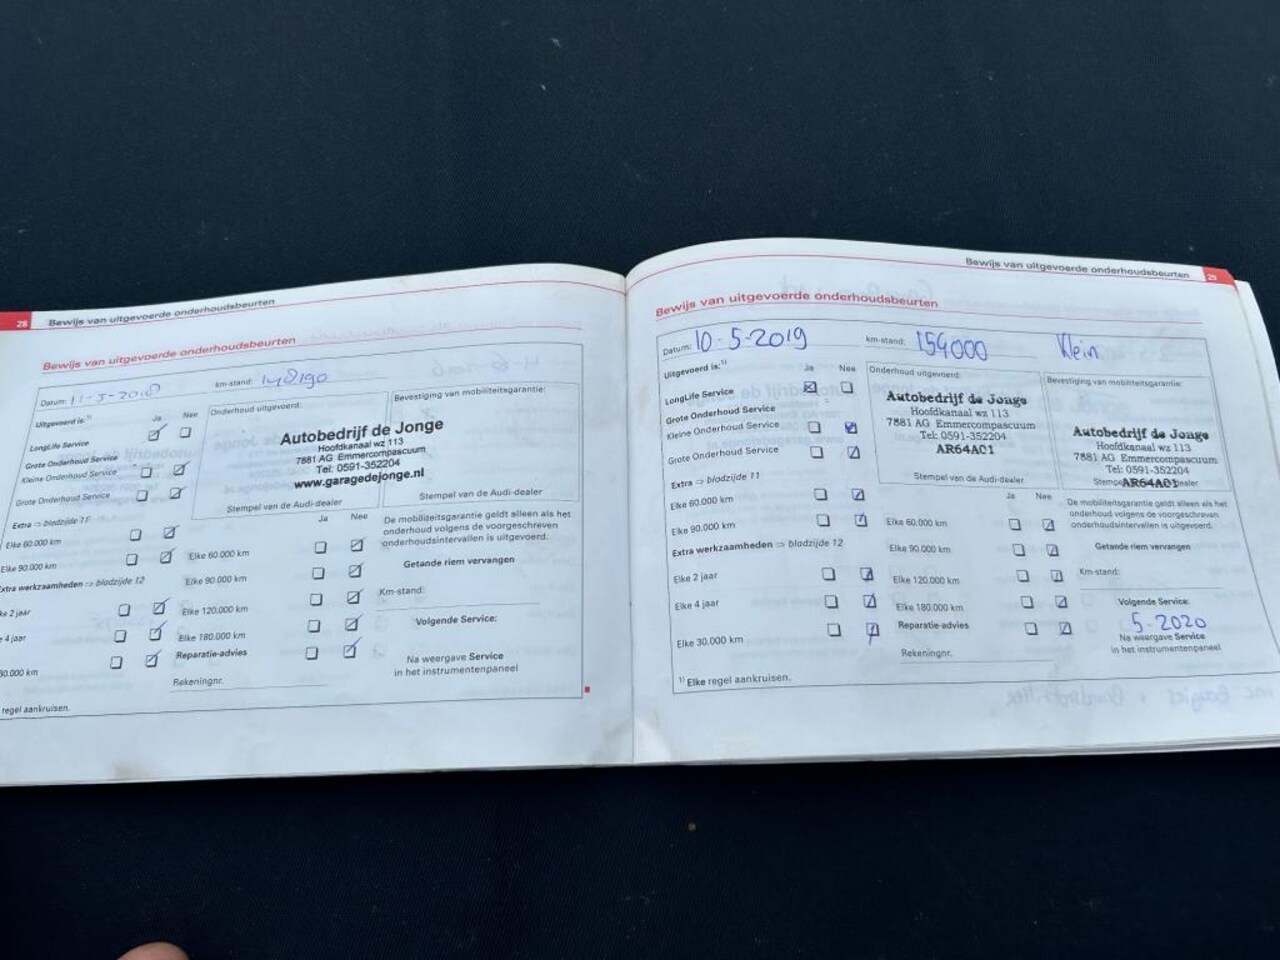 28 Bewijs van uitgevoerde onderhoudsbeurten
Bewijs van uitgevoerde onderhoudsbeurten
Datum: 11-5-2018 km-stand: 148190
Uitgevoerd is:¹⁾ Ja Nee
LongLife Service
Grote Onderhoud Service
Kleine Onderhoud Service
Grote Onderhoud Service
Extra ⇒ bladzijde 11
Elke 60.000 km
Elke 90.000 km
Extra werkzaamheden ⇒ bladzijde 12
ke 2 jaar
e 4 jaar
30.000 km
regel aankruisen.
Onderhoud uitgevoerd:
Autobedrijf de Jonge
Hoofdkanaal wz 113
7881 AG Emmercompascuum
Tel: 0591-352204
www.garagedejonge.nl
Stempel van de Audi-dealer
Ja Nee
Elke 60.000 km
Elke 90.000 km
Elke 120.000 km
Elke 180.000 km
Reparatie-advies
Rekeningnr.
Bevestiging van mobiliteitsgarantie:
Stempel van de Audi-dealer
De mobiliteitsgarantie geldt alleen als het
onderhoud volgens de voorgeschreven
onderhoudsintervallen is uitgevoerd.
Getande riem vervangen
Km-stand:
Volgende Service:
Na weergave Service
in het instrumentenpaneel
Bewijs van uitgevoerde onderhoudsbeurten 29
Bewijs van uitgevoerde onderhoudsbeurten
Datum: 10-5-2019 km-stand: 154000 Klein
Uitgevoerd is:¹⁾ Ja Nee
LongLife Service
Grote Onderhoud Service
Kleine Onderhoud Service
Grote Onderhoud Service
Extra ⇒ bladzijde 11
Elke 60.000 km
Elke 90.000 km
Extra werkzaamheden ⇒ bladzijde 12
Elke 2 jaar
Elke 4 jaar
Elke 30.000 km
¹⁾ Elke regel aankruisen.
Onderhoud uitgevoerd:
Autobedrijf de Jonge
Hoofdkanaal wz 113
7881 AG Emmercompascuum
Tel: 0591-352204
AR64A01
Stempel van de Audi-dealer
Ja Nee
Elke 60.000 km
Elke 90.000 km
Elke 120.000 km
Elke 180.000 km
Reparatie-advies
Rekeningnr.
Bevestiging van mobiliteitsgarantie:
Autobedrijf de Jonge
Hoofdkanaal wz 113
7881 AG Emmercompascuum
Tel: 0591-352204
AR64A01
De mobiliteitsgarantie geldt alleen als het
onderhoud volgens de voorgeschreven
onderhoudsintervallen is uitgevoerd.
Getande riem vervangen
Km-stand:
Volgende Service:
5-2020
Na weergave Service
in het instrumentenpaneel